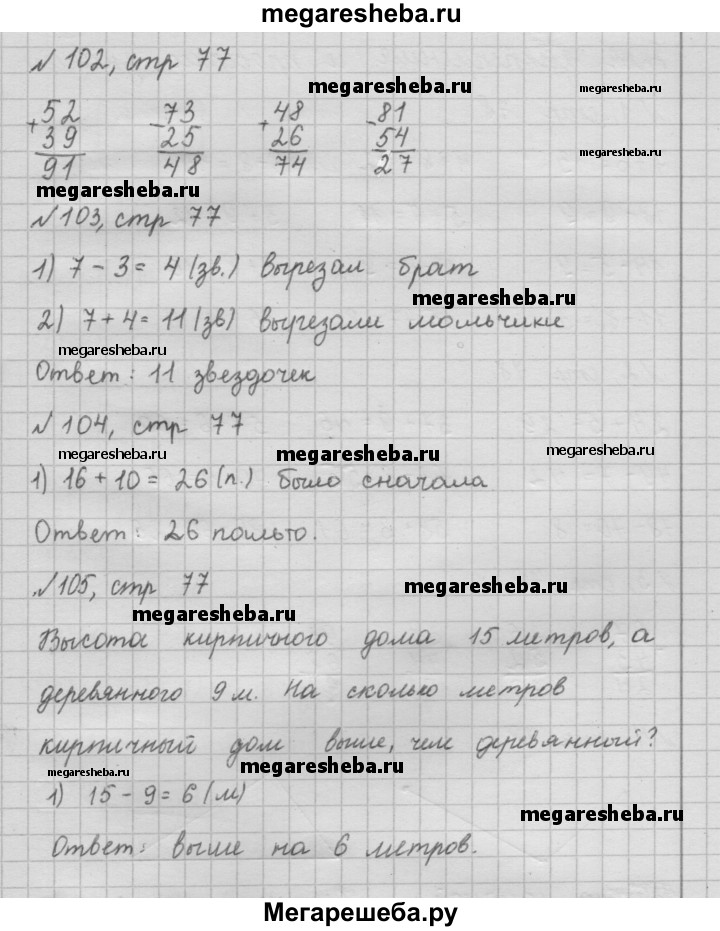 megaresheba.ru
№ 102, стр 77
megaresheba.ru
megaresheba.ru
+ 52 - 73 + 48 - 81
39 25 26 54
megaresheba.ru
91 48 74 27
megaresheba.ru
№ 103, стр 77
1) 7 - 3 = 4 (зв.) вырезал брат
megaresheba.ru
2) 7 + 4 = 11 (зв) вырезали мальчики
megaresheba.ru
Ответ: 11 звездочек
№ 104, стр 77
megaresheba.ru
megaresheba.ru
megaresheba.ru
1) 16 + 10 = 26 (п.) было сначала
Ответ: 26 пальто.
№ 105, стр 77
megaresheba.ru
megaresheba.ru
Высота кирпичного дома 15 метров, а
деревянного 9 м. На сколько метров
кирпичный дом выше, чем деревянный?
megaresheba.ru
megaresheba.ru
1) 15 - 9 = 6 (м)
megaresheba.ru
Ответ: выше на 6 метров.
Мегарешеба.ру